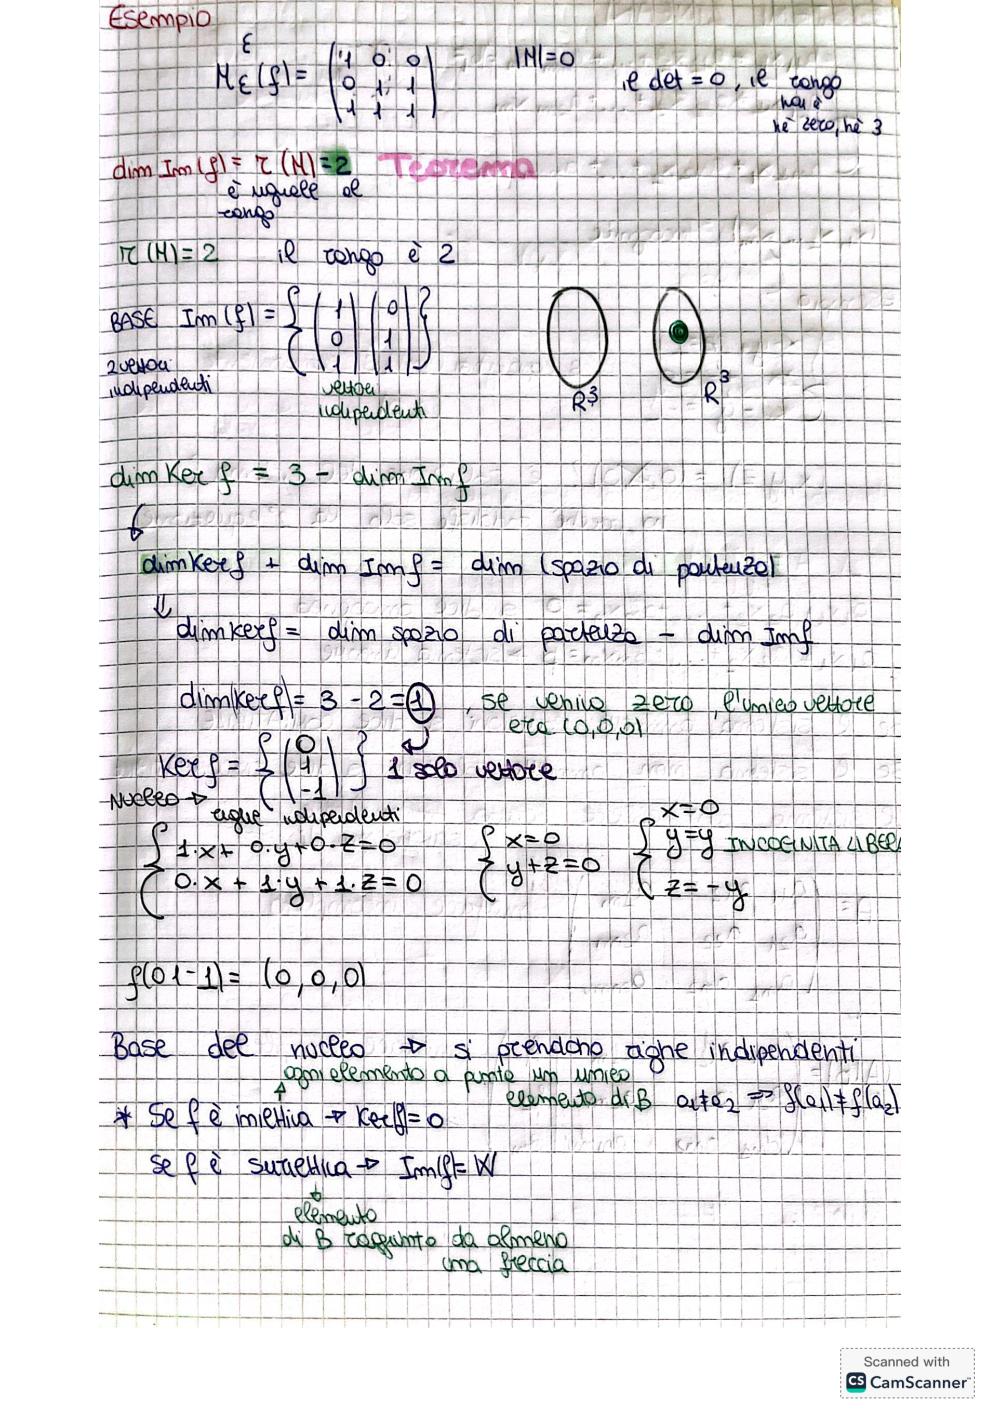 Esempio
M_ε^ε(f) = (1 0 0 / 0 1 1 / 1 1 1) |M|=0
il det = 0, il rango
non è
nè zero, nè 3
dim Im(f) = r(M)=2 Teorema
è uguale al
rango
r(M)=2 il rango è 2
BASE Im(f) = {(1 / 0 / 1) (0 / 1 / 1)}
2 vettori
indipendenti
vettori
indipendenti
R³
R³
dim Ker f = 3 - dim Im f
dim Ker f + dim Im f = dim (spazio di partenza)
↓ dim ker f = dim spazio di partenza - dim Im f
dim(ker f) = 3 - 2 = 1, se veniva zero, l'unico vettore
era (0,0,0)
Ker f = {(0 / 1 / -1)} 1 solo vettore
Nucleo → righe indipendenti
{ 1·x + 0·y + 0·z = 0
0·x + 1·y + 1·z = 0
{ x=0
y+z=0
{ x=0
y=y INCOGNITA LIBERA
z=-y
f(0 1 -1) = (0, 0, 0)
Base del nucleo → si prendono righe indipendenti
ogni elemento a punta un unico
elemento di B a₁≠a₂ => f(a₁)≠f(a₂)
* Se f è iniettiva → Ker(f)=0
Se f è suriettiva → Im(f)= W
elemento
di B raggiunto da almeno
una freccia
Scanned with
CS CamScanner